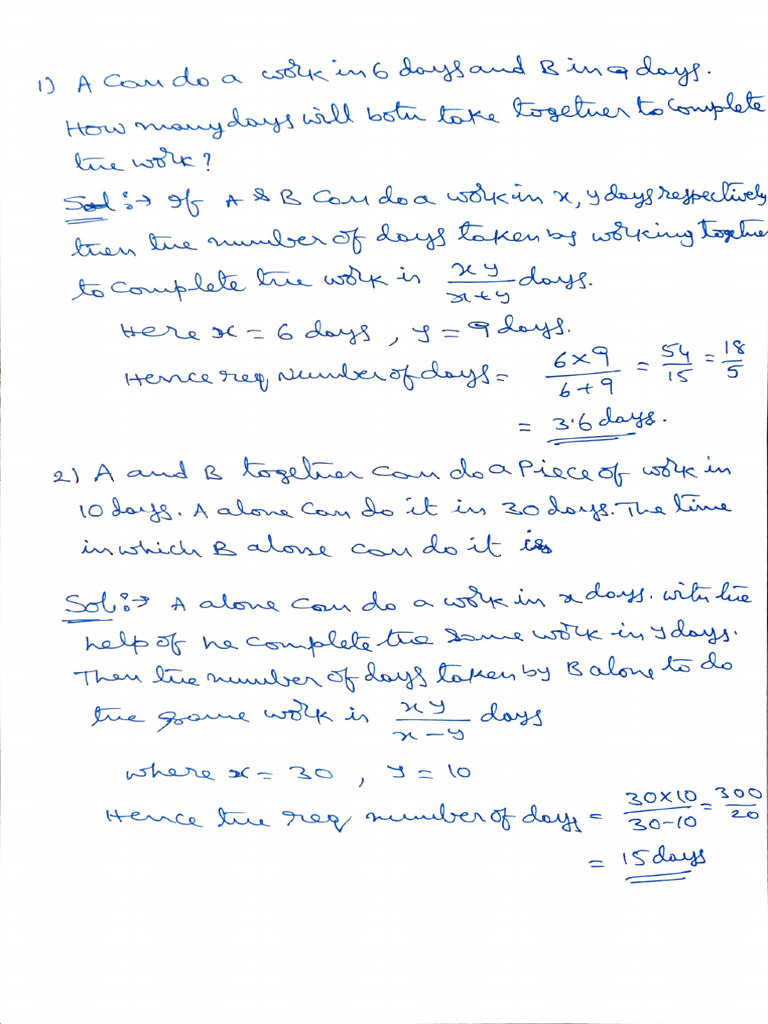 1) A can do a work in 6 days and B in 9 days.
How many days will both take together to complete
the work?
Sol :→ If A & B can do a work in x, y days respectively
then the number of days taken by working together
to complete the work is xy/x+y days.
Here x = 6 days , y = 9 days.
Hence req number of days = 6×9/6+9 = 54/15 = 18/5
= 3.6 days.
2) A and B together can do a piece of work in
10 days. A alone can do it in 30 days. The time
in which B alone can do it is
Sol :→ A alone can do a work in x days. with the
help of he complete the same work in y days.
Then the number of days taken by B alone to do
the same work is xy/x-y days
where x = 30 , y = 10
Hence the req number of days = 30×10/30-10 = 300/20
= 15 days